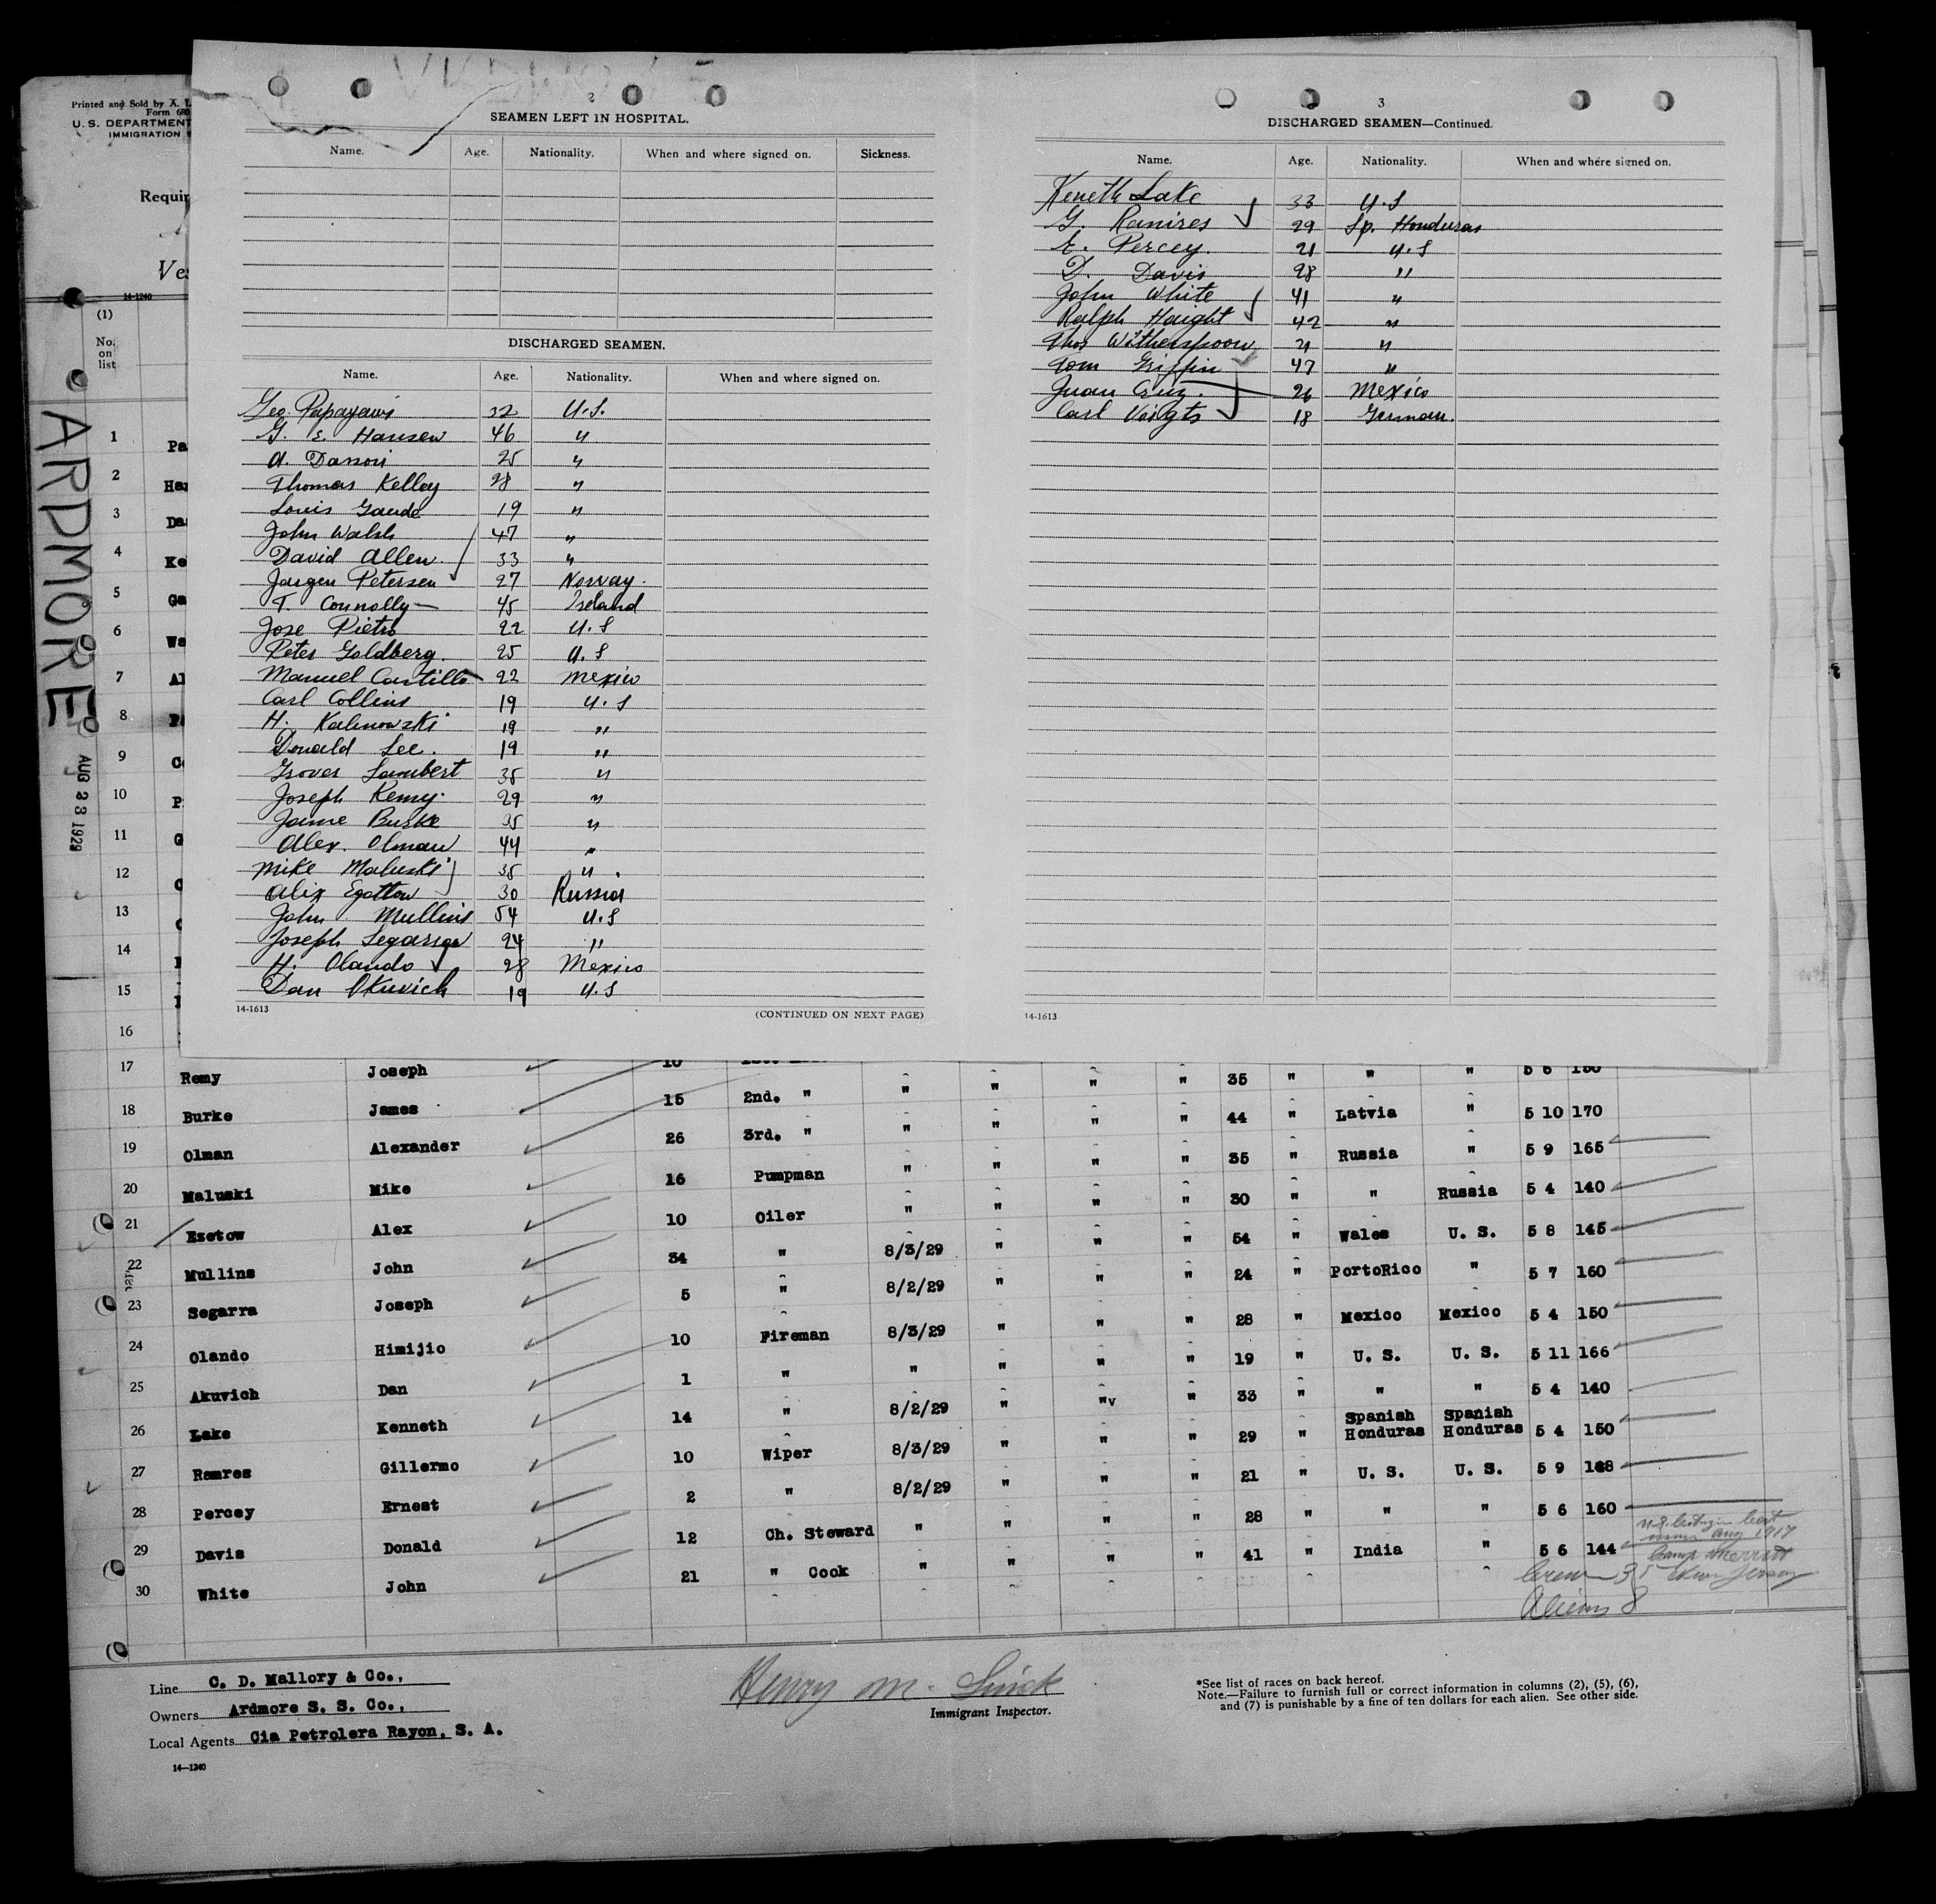 Printed and Sold by A. L.
Form 680
U. S. DEPARTMENT
IMMIGRATION
Requir
Ves
14-1240
(1)
No. on list
ARDMORE
AUG 23 1929
2
SEAMEN LEFT IN HOSPITAL.
Name. Age. Nationality. When and where signed on. Sickness.
DISCHARGED SEAMEN.
Name. Age. Nationality. When and where signed on.
Geo Papayanis 32 U.S.
G. E Hansen 46 "
A. Dansoi 25 "
Thomas Kelley 28 "
Louis Gaude 19 "
John Walsh 47 "
David Allen 33 "
Jorgen Petersen 27 Norway.
T. Connolly 45 Ireland
Jose Pietro 22 U.S
Peter Goldberg. 25 U.S
Manuel Castillo 22 Mexico
Carl Collins 19 U.S
H. Kalinowski 19 "
Donald Lee. 19 "
Grover Lambert 35 "
Joseph Remy. 29 "
Jame Burke 35 "
Alex. Olman 44 "
Mike Maluski 35 "
Alix Egottow 30 Russia
John Mullins 54 U.S
Joseph Segarra 24 "
H. Olando 28 Mexico
Dan Akuvich 19 U.S
14-1613 (CONTINUED ON NEXT PAGE)
3
DISCHARGED SEAMEN—Continued.
Name. Age. Nationality. When and where signed on.
Keneth Lake 33 U.S
G. Ramires 29 Sp. Honduras
E. Percey. 21 U.S
D. Davis 28 "
John White 41 "
Ralph Haight 42 "
Thos Witherspoon 21 "
Tom Griffin 47 "
Juan Cruz. 26 Mexico
Carl Voigts 18 German.
14-1613
1 Pa
2 Han
3 Da
4 Ke
5 Ga
6 Wa
7 Al
8
9 Co
10 P
11 G
12 C
13
14
15
16
17 Remy Joseph 10
18 Burke James 15 2nd. " " " " " 35 " " " 5 6 150
19 Olman Alexander 26 3rd. " " " " " 44 " Latvia " 5 10 170
20 Maluski Mike 16 Pumpman " " " " 35 " Russia " 5 9 165
21 Ezetow Alex 10 Oiler " " " " 30 " " Russia 5 4 140
22 Mullins John 34 " 8/3/29 " " " 54 " Wales U. S. 5 8 145
23 Segarra Joseph 5 " 8/2/29 " " " 24 " PortoRico " 5 7 160
24 Olando Himijio 10 Fireman 8/3/29 " " " 28 " Mexico Mexico 5 4 150
25 Akuvich Dan 1 " " " " " 19 " U. S. U. S. 5 11 166
26 Lake Kenneth 14 " 8/2/29 " " " 33 " " " 5 4 140
27 Ramres Gillermo 10 Wiper 8/3/29 " " " 29 " Spanish Honduras Spanish Honduras 5 4 150
28 Percey Ernest 2 " 8/2/29 " " " 21 " U. S. U. S. 5 9 148
29 Davis Donald 12 Ch. Steward " " " " 28 " " " 5 6 160
30 White John 21 " Cook " " " " 41 " India " 5 6 144
Aug 1917
Camp Merritt
New Jersey
Crew 35
Aliens 8
Line C. D. Mallory & Co.,
Owners Ardmore S. S. Co.,
Local Agents Cia Petrolera Rayon, S. A.
14—1240
Henry M.
Immigrant Inspector.
*See list of races on back hereof.
Note.—Failure to furnish full or correct information in columns (2), (5), (6),
and (7) is punishable by a fine of ten dollars for each alien. See other side.